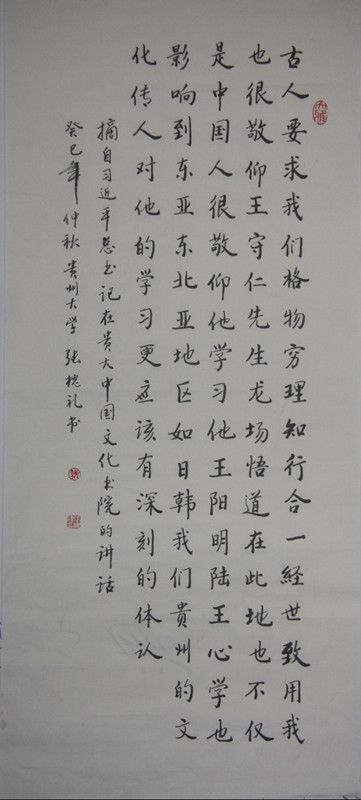 古人要求我们格物穷理知行合一经世致用我
也很敬仰王守仁先生龙场悟道在此地也不仅
是中国人很敬仰他学习他王阳明陆王心学也
影响到东亚东北亚地区如日韩我们贵州的文
化传人对他的学习更应该有深刻的体认
摘自习近平总书记在贵大中国文化书院的讲话
癸巳年仲秋贵州大学张㧯礼书